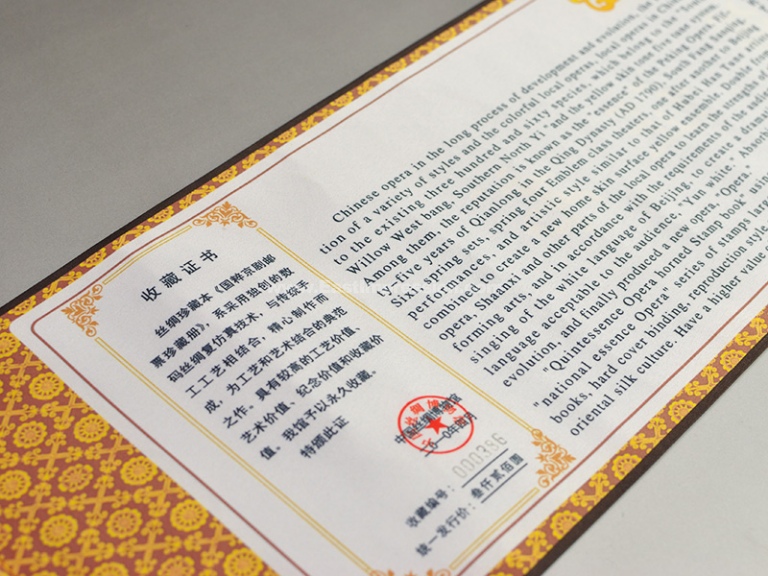 收藏证书
丝绸珍藏本《国粹京剧邮
票珍藏册》，系采用独创的数
码丝绸复仿真技术，与传统手
工工艺相结合，精心制作而
成，为工艺和艺术结合的典范
之作。具有较高的工艺价值、
艺术价值、纪念价值和收藏价
值。我馆予以永久收藏。
特颁此证
中国丝绸博物馆
二0一0年四月
收藏编号：000386
统一发行价：叁仟贰佰圆
Chinese opera in the long process of development and evolution, the
tion of a variety of styles and the colorful local operas, local opera in
to the existing three hundred and sixty species, which belong to the
Willow West bang, Southern North Yi "and the yellow skin tone five tone
Among them, the reputation is known as the "essence" of the Peking Opera.
five years of Qianlong in the Qing Dynasty (AD 1790), South Fang Sanqing,
Sixi, spring sets, spring four Emblem class theater, one after another to Beijing
performances, and artistic style similar to that of Hubei Han Tune
combined to create a new home, skin surface yellow ensemble. Double
opera, Shaanxi and other parts of the local opera to learn the strengths of
forming arts, and in accordance with the requirements of the
singing of the white language of Beijing, to create a
language acceptable to the audience, "Yun white."
evolution, and finally produced a new opera, "Opera."
"Quintessence Opera horned Stamp book" using
"national essence Opera" series of stamps large
books, hard cover binding, reproduction style
oriental silk culture. Have a higher value